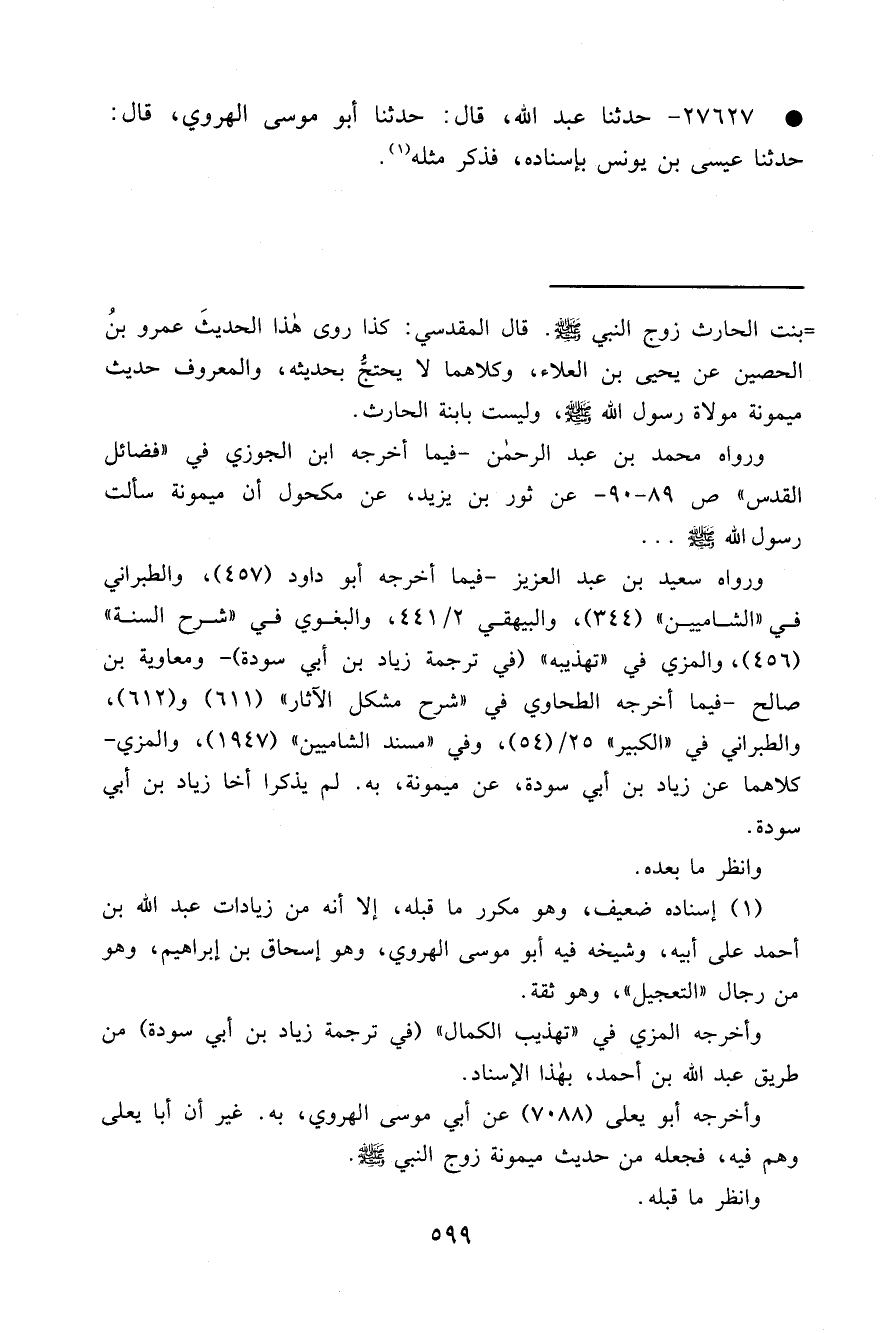 ● ٢٧٦٢٧- حدثنا عبد الله، قال: حدثنا أبو موسى الهروي، قال:
حدثنا عيسى بن يونس بإسناده، فذكر مثله(١).
=بنت الحارث زوج النبي ﷺ. قال المقدسي: كذا روى هٰذا الحديثَ عمرو بنُ
الحصين عن يحيى بن العلاء، وكلاهما لا يحتجُّ بحديثه، والمعروف حديث
ميمونة مولاة رسول الله ﷺ، وليست بابنة الحارث.
ورواه محمد بن عبد الرحمٰن -فيما أخرجه ابن الجوزي في «فضائل
القدس» ص ٨٩-٩٠- عن ثور بن يزيد، عن مكحول أن ميمونة سألت
رسول الله ﷺ ...
ورواه سعيد بن عبد العزيز -فيما أخرجه أبو داود (٤٥٧)، والطبراني
في «الشاميين» (٣٤٤)، والبيهقي ٤٤١/٢، والبغوي في «شرح السنة»
(٤٥٦)، والمزي في «تهذيبه» (في ترجمة زياد بن أبي سودة)- ومعاوية بن
صالح -فيما أخرجه الطحاوي في «شرح مشكل الآثار» (٦١١) و(٦١٢)،
والطبراني في «الكبير» ٢٥/(٥٤)، وفي «مسند الشاميين» (١٩٤٧)، والمزي-
كلاهما عن زياد بن أبي سودة، عن ميمونة، به. لم يذكرا أخا زياد بن أبي
سودة.
وانظر ما بعده.
(١) إسناده ضعيف، وهو مكرر ما قبله، إلا أنه من زيادات عبد الله بن
أحمد على أبيه، وشيخه فيه أبو موسى الهروي، وهو إسحاق بن إبراهيم، وهو
من رجال «التعجيل»، وهو ثقة.
وأخرجه المزي في «تهذيب الكمال» (في ترجمة زياد بن أبي سودة) من
طريق عبد الله بن أحمد، بهٰذا الإسناد.
وأخرجه أبو يعلى (٧٠٨٨) عن أبي موسى الهروي، به. غير أن أبا يعلى
وهم فيه، فجعله من حديث ميمونة زوج النبي ﷺ.
وانظر ما قبله.
٥٩٩